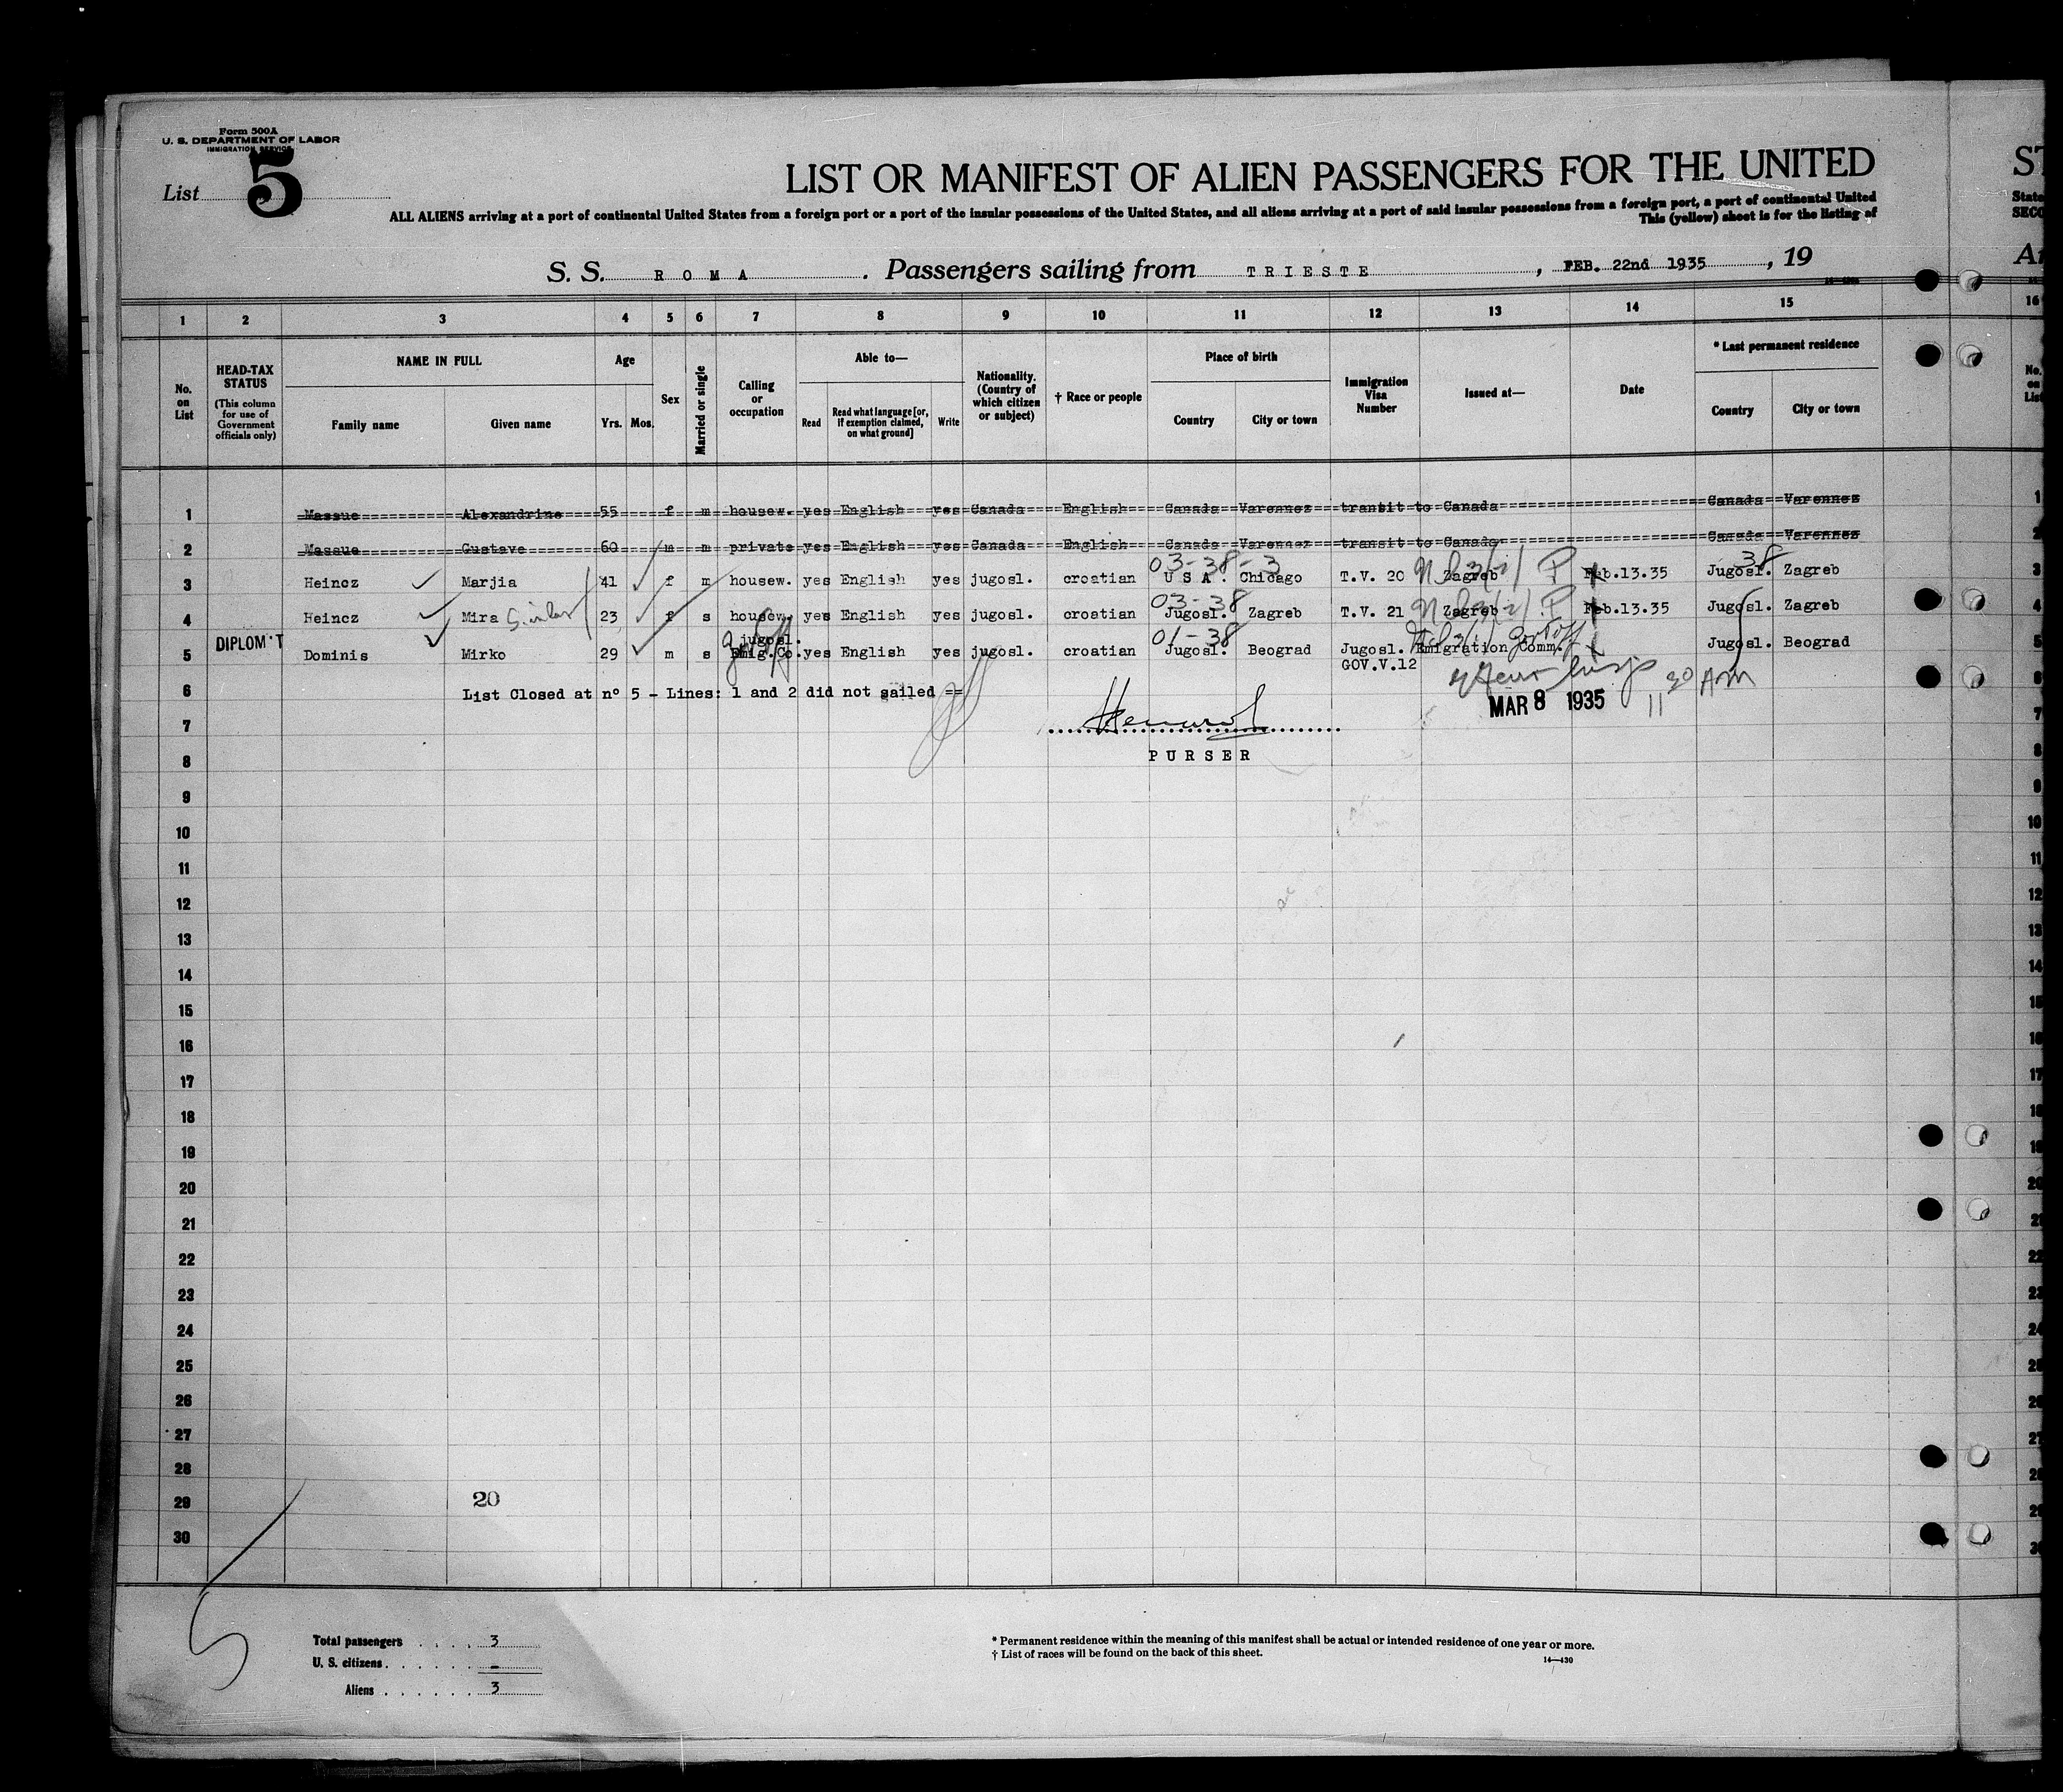 Form 500A
U. S. DEPARTMENT OF LABOR
IMMIGRATION SERVICE
List 5
LIST OR MANIFEST OF ALIEN PASSENGERS FOR THE UNITED
ALL ALIENS arriving at a port of continental United States from a foreign port or a port of the insular possessions of the United States, and all aliens arriving at a port of said insular possessions from a foreign port, a port of continental United
This (yellow) sheet is for the listing of
S. S. ROMA . Passengers sailing from TRIESTE , FEB. 22nd 1935 , 19
1 2 3 4 5 6 7 8 9 10 11 12 13 14 15 16
No. on List
HEAD-TAX STATUS (This column for use of Government officials only)
NAME IN FULL Family name Given name
Age Yrs. Mos.
Sex
Married or single
Calling or occupation
Able to— Read Read what language [or, if exemption claimed, on what ground] Write
Nationality. (Country of which citizen or subject)
† Race or people
Place of birth Country City or town
Immigration Visa Number
Issued at—
Date
* Last permanent residence Country City or town
1 Massue Alexandrine 55 f m housew. yes English yes Canada English Canada Varennez transit to Canada Canada Varennez
2 Massue Gustave 60 m m private yes English yes Canada English Canada Varennez transit to Canada Canada Varennez
03-38-3 38
3 Heincz Marjia 41 f m housew. yes English yes jugosl. croatian U S A . Chicago T.V. 20 Zagreb P Feb.13.35 Jugosl. Zagreb
03-38
4 Heincz Mira 23 f s housew. yes English yes jugosl. croatian Jugosl. Zagreb T.V. 21 Zagreb P Feb.13.35 Jugosl. Zagreb
DIPLOM T jugosl. 01-38
5 Dominis Mirko 29 m s Emig.Co. yes English yes jugosl. croatian Jugosl. Beograd Jugosl. Emigration Comm. Jugosl. Beograd
GOV.V.12
6 List Closed at nº 5 - Lines: 1 and 2 did not sailed ==
MAR 8 1935 11 30 AM
7
PURSER
8
9
10
11
12
13
14
15
16
17
18
19
20
21
22
23
24
25
26
27
28
29 20
30
5
Total passengers . . . . 3
U. S. citizens . . . . . . -
Aliens . . . . . . 3
* Permanent residence within the meaning of this manifest shall be actual or intended residence of one year or more.
† List of races will be found on the back of this sheet.
14—430